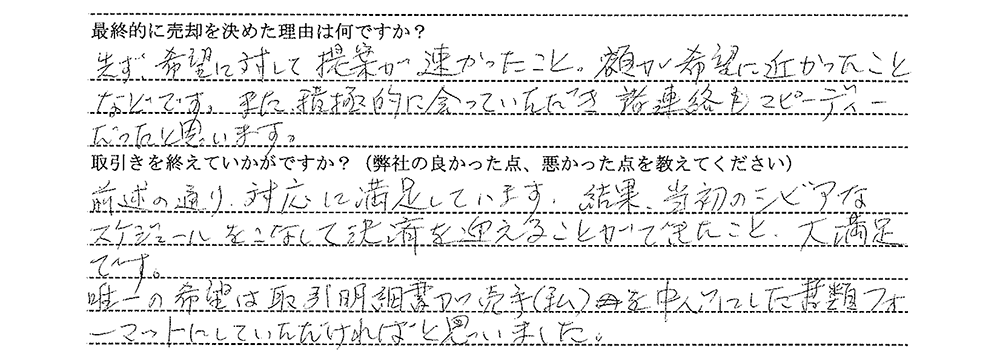 最終的に売却を決めた理由は何ですか?
先ず、希望に対して提案が速かったこと。額が希望に近かったこと
などです。また、積極的に会っていただき諸連絡もスピーディー
だったと思います。
取引きを終えていかがですか?(弊社の良かった点、悪かった点を教えてください)
前述の通り、対応に満足しています。結果、当初のシビアな
スケジュールをこなして決済を迎えることができたこと、大満足
です。
唯一の希望は取引明細書が売手(私)を中心にした書類フォ
ーマットにしていただければと思いました。